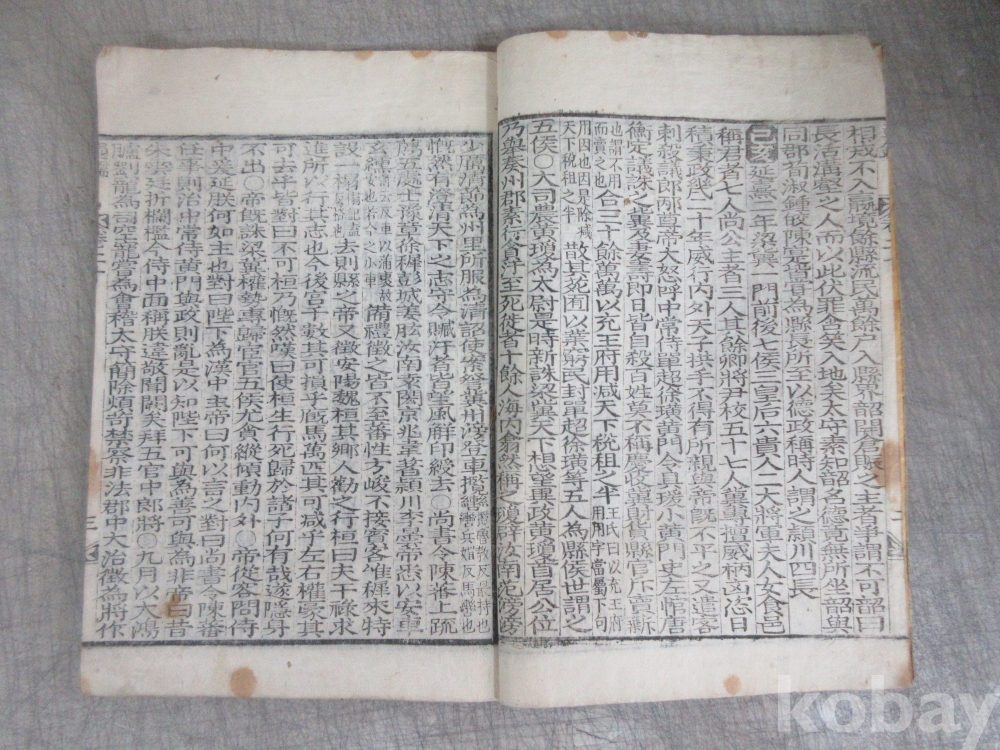 相戒不入嬴境餘縣流民萬餘戶入縣界韶開倉賑之主者爭謂不可韶曰
長活溝壑之人而以此伏罪含笑入地矣太守素知韶名德竟無所坐韶與
同郡荀淑鍾皓陳寔皆嘗爲縣長所至以德政稱時人謂之潁川四長
己亥延熹二年梁冀一門前後七侯三皇后六貴人二大將軍夫人女食邑
稱君者七人尚公主者三人其餘卿將尹校五十七人冀專擅威柄凶恣日
積秉政幾二十年威行內外天子拱手不得有所親與帝旣不平之又遣客
刺殺議郎邴尊帝大怒呼中常侍單超徐璜黃門令具瑗小黃門史左悺唐
衡定議誅之冀及妻壽卽日皆自殺百姓莫不稱慶收冀財貨縣官斥賣斥
也謂不用而賣之也合三十餘萬萬以充王府用减天下稅租之半王氏曰以充王府用用字當屬下句
用因也因見除減天下稅租之半散其苑囿以業窮民封單超徐璜等五人爲縣侯世謂之
五侯○大司農黃瓊爲太尉是時新誅梁冀天下想望異政黃瓊首居公位
乃擧奏州郡素行貪汙至死徙者十餘人海內翕然稱之瓊辟汝南范滂滂
少厲淸節爲州里所服爲淸詔使案察冀州滂登車攬轡
慨然有澄淸天下之志守令贓汙者皆望風解印綬去○尚書令陳蕃上疏
薦五處士豫章徐穉彭城姜肱汝南袁閎京兆韋著潁川李曇帝悉以安車
玄纁備禮徵之皆不至蕃性方峻不接賓客惟穉來特
設一榻去則縣之帝又徵安陽魏桓其鄕人勸之行桓曰夫干祿求
進所以行其志也今後宮千數其可損乎廐馬萬匹其可减乎左右權豪其
可去乎皆對曰不可桓乃慨然嘆曰使桓生行死歸於諸子何有哉遂隱身
不出○帝旣誅梁冀權勢專歸宦官五侯尤貪縱傾動內外○帝從容問侍
中爰延朕何如主也對曰陛下爲漢中主帝曰何以言之對曰尚書令陳蕃
任事則治中常侍黃門與政則亂是以知陛下可與爲善可與爲非帝曰昔
朱雲廷折欄檻今侍中面稱朕違敬聞闕矣拜五官中郎將○九月以大鴻
臚劉寵爲司空寵嘗爲會稽太守簡除煩苛禁察非法郡中大治徵爲將作